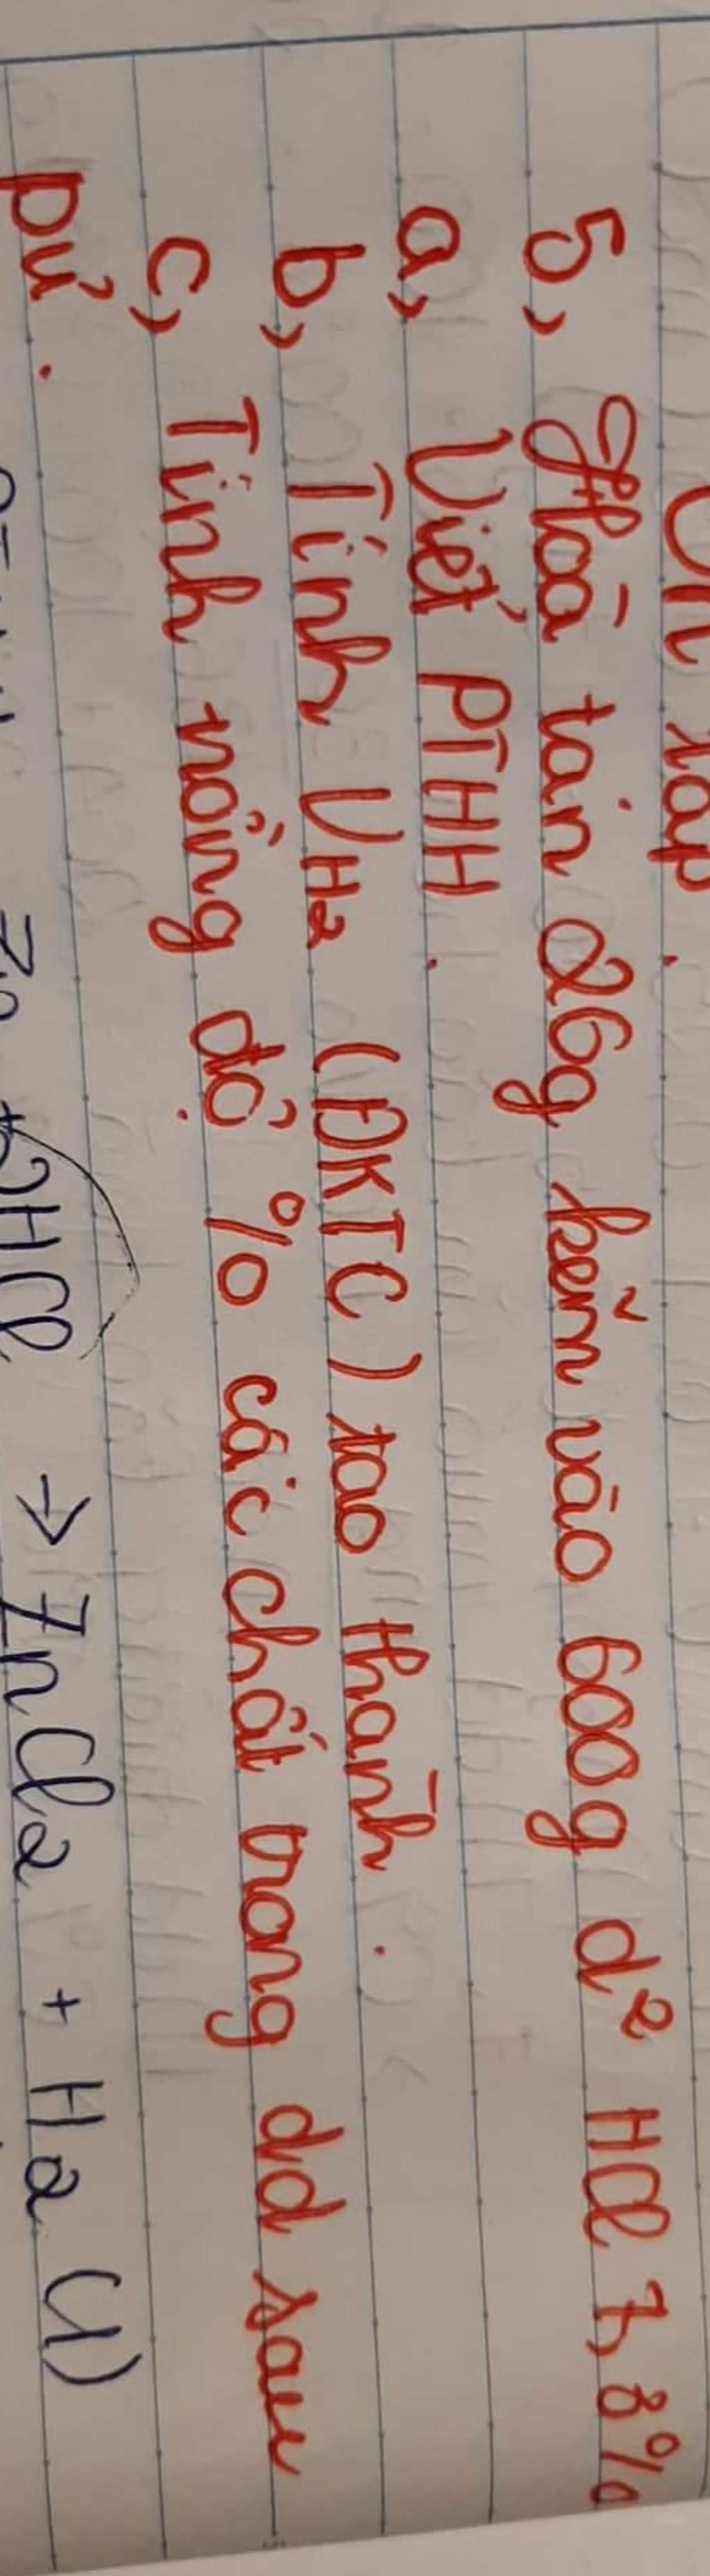 Ôn tập.
5, Hoà tan 26g kẽm vào 600g d² HCl 7,3%
a, Viết PTHH.
b, Tính VH2 (ĐKTC) tạo thành.
c, Tính nồng độ % các chất trong dd sau
pứ.
Zn + 2HCl → ZnCl2 + H2 (1)